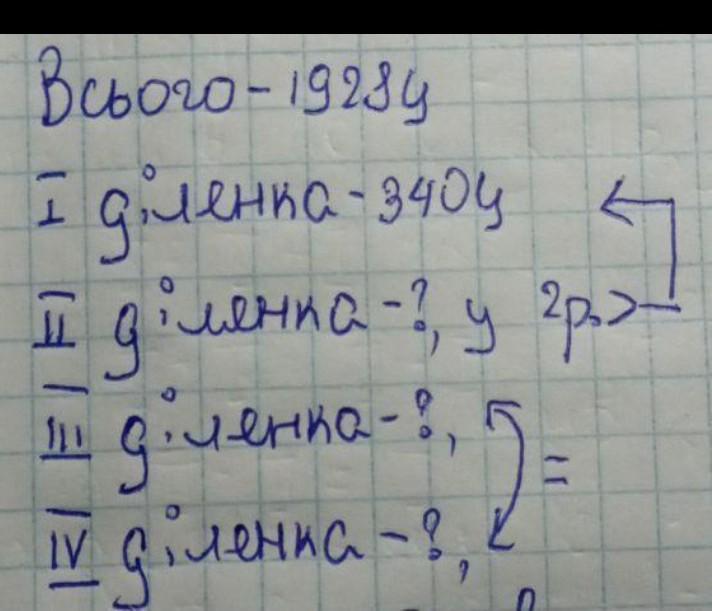 Всього - 1928ц
I ділянка - 340ц
II ділянка - ?, у 2р. >
III ділянка - ?,
IV ділянка - ?, =